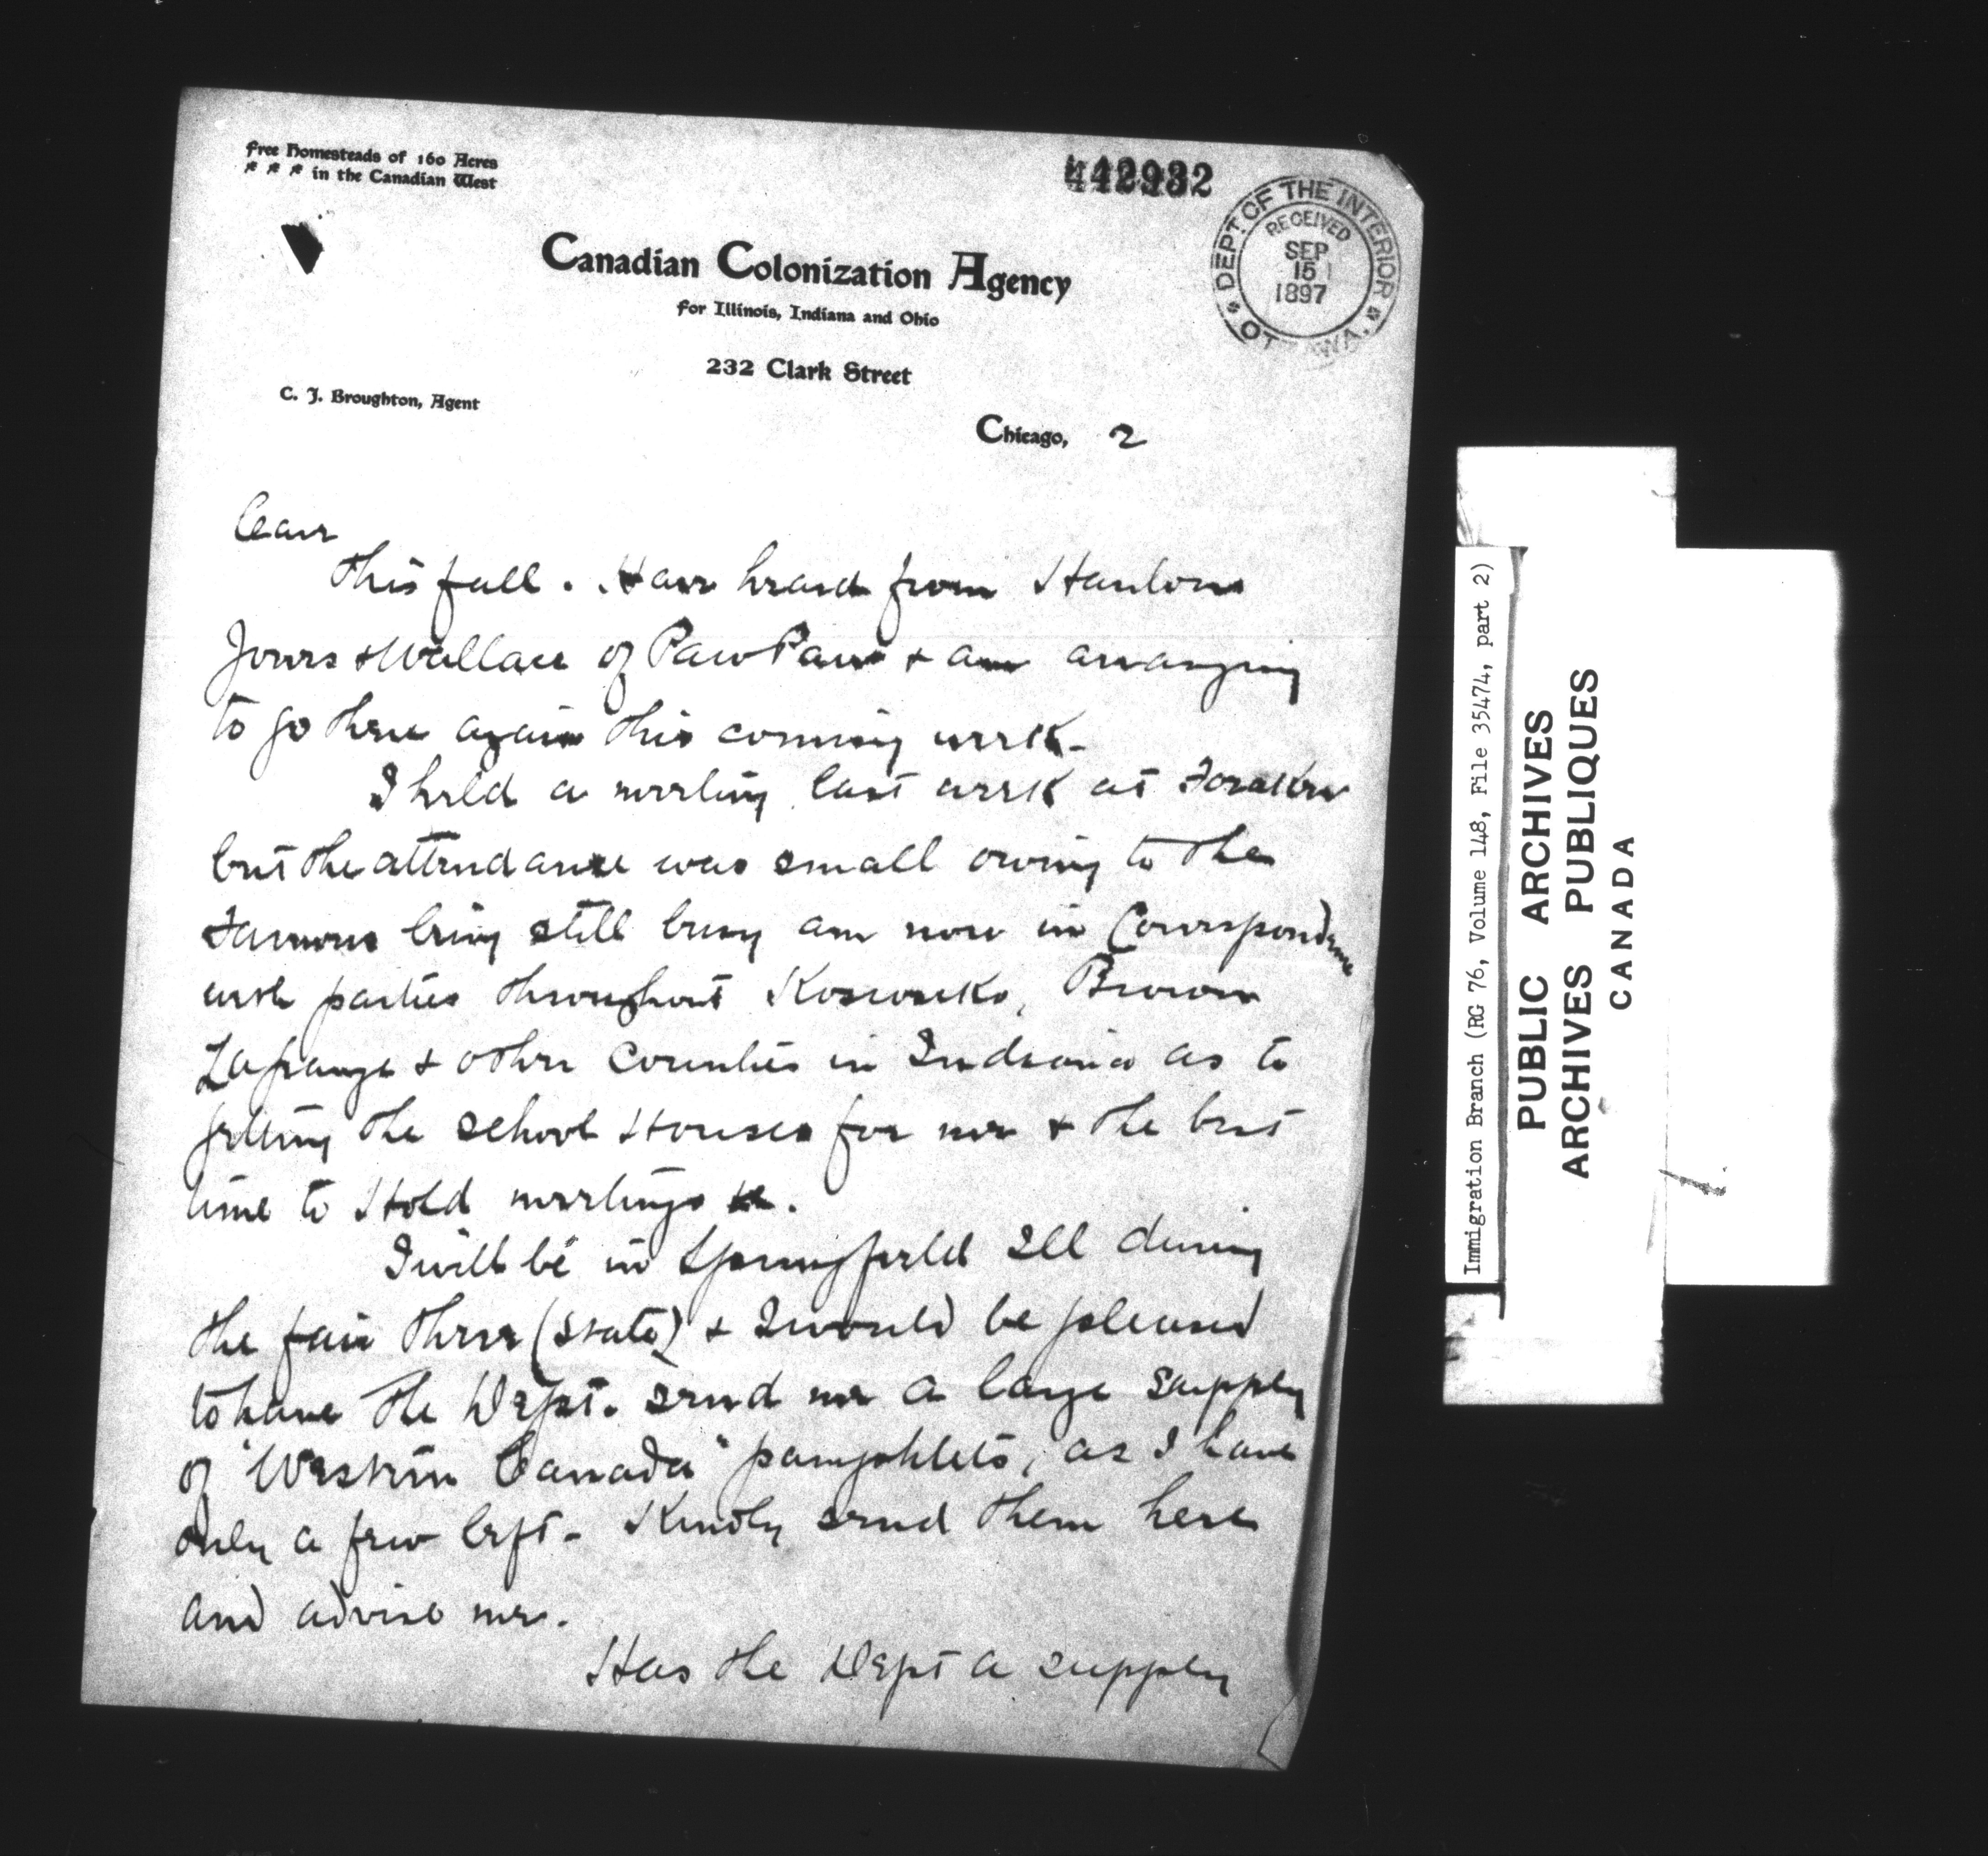 Free Homesteads of 160 Acres
* * * in the Canadian West
442932
DEPT. OF THE INTERIOR
RECEIVED
SEP
15
1897
OTTAWA.
Canadian Colonization Agency
for Illinois, Indiana and Ohio
232 Clark Street
C. J. Broughton, Agent
Chicago, 2
leave
this fall. Have heard from Hanlon
Jones & Wallace of Paw Paw & am arranging
to go there again this coming week-
I held a meeting last week at Foraker
but the attendance was small owing to the
Farmers being still busy am now in Correspondence
with parties throughout Kosciusko, Brown
Lagrange & other Counties in Indiana as to
getting the school Houses for me & the best
time to Hold meetings.
I will be in Springfield Ill during
the fair there (State) & I would be pleased
to have the Dept. send me a large supply
of "Western Canada" pamphlets, as I have
only a few left- Kindly send them here
and advise me.
Has the Dept a supply
Immigration Branch (RG 76, Volume 148, File 35474, part 2)
PUBLIC ARCHIVES
ARCHIVES PUBLIQUES
CANADA